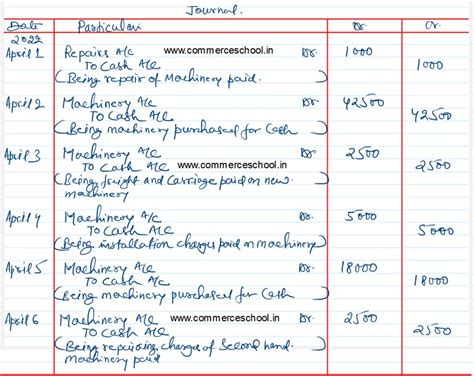 Journal.
Date Particulars Dr. Cr.
2022
April 1 Repairs A/c www.commerceschool.in Dr. 1000
To Cash A/c 1000
(Being repair of Machinery paid.
April 2 Machinery A/c Dr. 42500
To Cash A/c 42500
(Being machinery purchased for Cash)
April 3 Machinery A/c Dr. 2500
To Cash A/c www.commerceschool.in 2500
(Being freight and Carriage paid on new machinery
April 4 Machinery A/c Dr. 5000
To Cash A/c 5000
(Being installation charges paid on machinery)
April 5 Machinery A/c Dr. 18000
To Cash A/c 18000
(Being machinery purchased for Cash)
April 6 Machinery A/c www.commerceschool.in Dr. 2500
To Cash A/c 2500
(Being repairing charges of Second hand.
Machinery paid